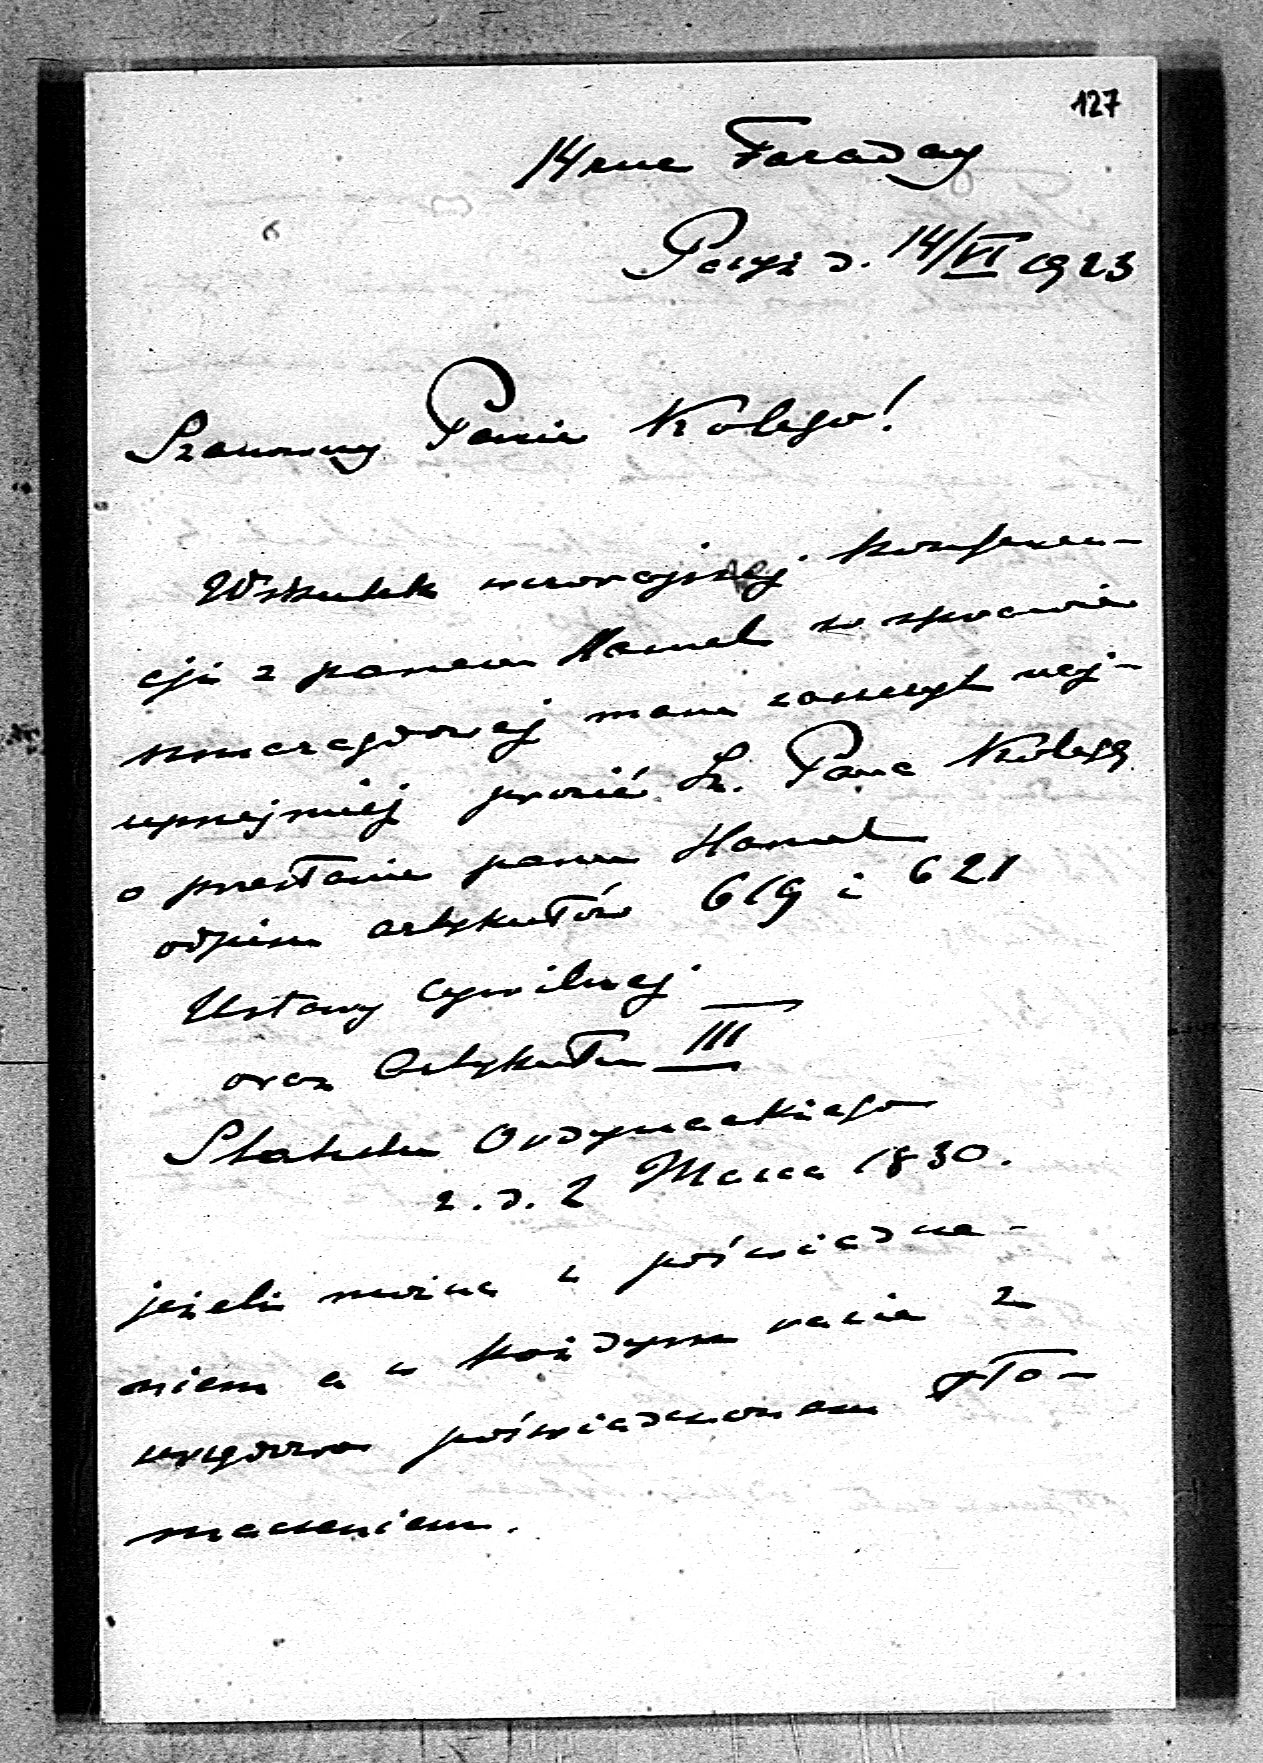 127
14 rue Faraday
Paryż d. 14/VI 1923
Szanowny Panie Kolego!
Wskutek wczorajszej konferen-
cji z panem Hamel w sprawie
mam zaszczyt uej-
uprzejmiej prosić Sz. Pana Kolegę
o przesłanie panu Hamel
odpisu artykułów 619 i 621
Ustawy Cywilnej
oraz Artykułu III
Statutu Ordynackiego
z. d. 2 Marca 1830.
jeżeli można z poświadcze-
niem a w każdym razie z
urzędowo poświadczonem tło-
maczeniem.